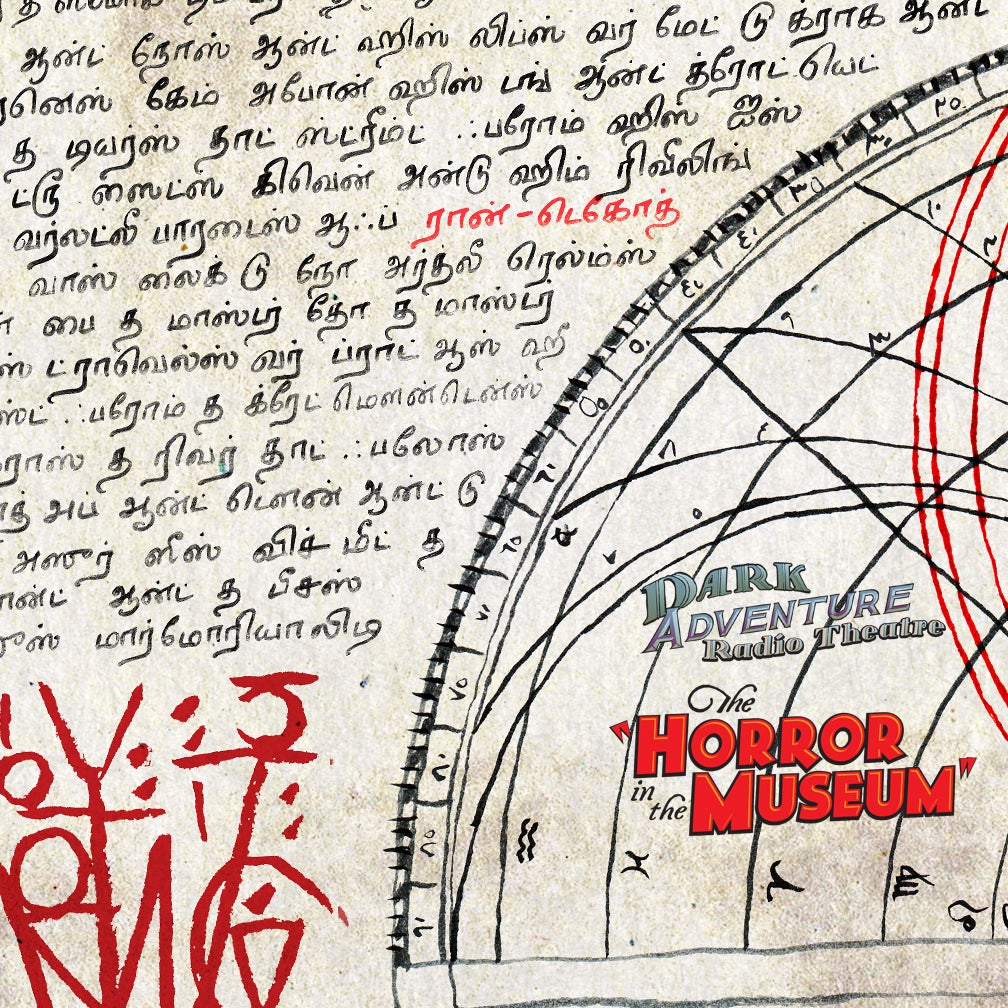 ஆண்ட் நோஸ் ஆண்ட் ஹிஸ் லிப்ஸ் வர் மேட் டு க்ராக ஆண்ட்
கேம் அபோண் ஹிஸ் டங் ஆண்ட் த்ரோட் யெட்
த டியர்ஸ் தாட் ஸ்ட்ரீம்ட் ஃபரோம் ஹிஸ் ஐஸ்
ட்ரூ ஸைட்ஸ் கிவென் அண்டு ஹிம் ரிவீலிங்
வர்லட்லீ பாரடைஸ் ஆஃப் ரான்-டெகோத்
வாஸ் லைக் டு நோ அர்த்லீ ரெலம்ஸ்
பை த மாஸ்டர் தோ த மாஸ்டர்
ட்ராவெல்ஸ் வர் ப்ராட் ஆஸ் ஹீ
ஃபரோம் த க்ரேட் மௌண்டென்ஸ்
த ரிவர் தாட் ஃபலோஸ்
அப் ஆண்ட் டௌண் ஆண்ட் டு
அஸுர் ஸீஸ் விச் மீட் த
ஆண்ட் த பீசஸ்
மார்மோரியாலிடி
DARK
ADVENTURE
Radio Theatre
The
"HORROR
in the MUSEUM"